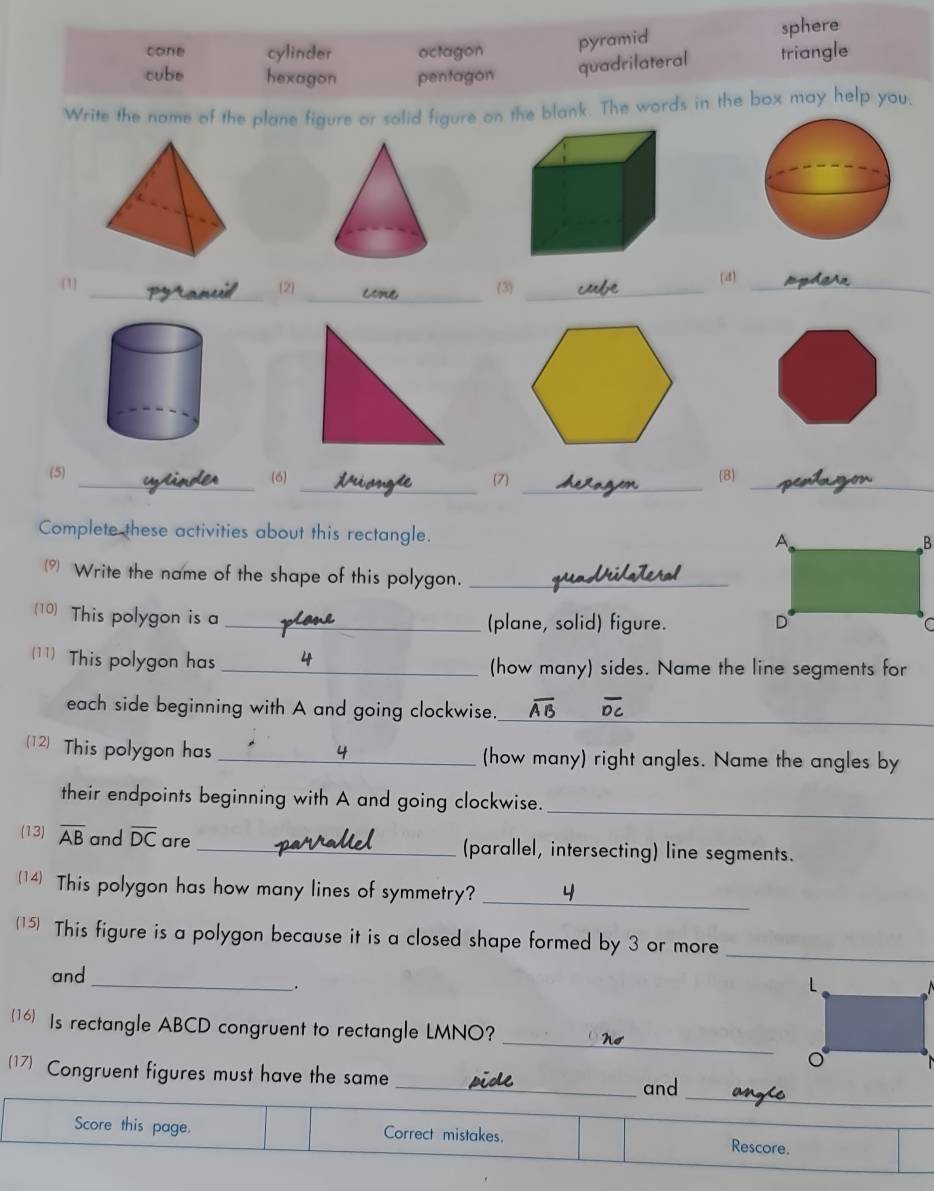 cone cylinder octagon pyramid sphere
cube hexagon pentagon quadrilateral triangle
Write the name of the plane figure or solid figure on the blank. The words in the box may help you.
(1) pyramid (2) cone (3) cube (4)
(5) cylinder (6) triangle (7) hexagon (8) pentagon
Complete these activities about this rectangle.
A B
(9) Write the name of the shape of this polygon. quadrilateral
(10) This polygon is a plane (plane, solid) figure.
D C
(11) This polygon has 4 (how many) sides. Name the line segments for
each side beginning with A and going clockwise. AB DC
(12) This polygon has 4 (how many) right angles. Name the angles by
their endpoints beginning with A and going clockwise.
(13) AB and DC are parrallel (parallel, intersecting) line segments.
(14) This polygon has how many lines of symmetry? 4
(15) This figure is a polygon because it is a closed shape formed by 3 or more
and .
L
(16) Is rectangle ABCD congruent to rectangle LMNO? no
O
(17) Congruent figures must have the same side and
Score this page. Correct mistakes. Rescore.